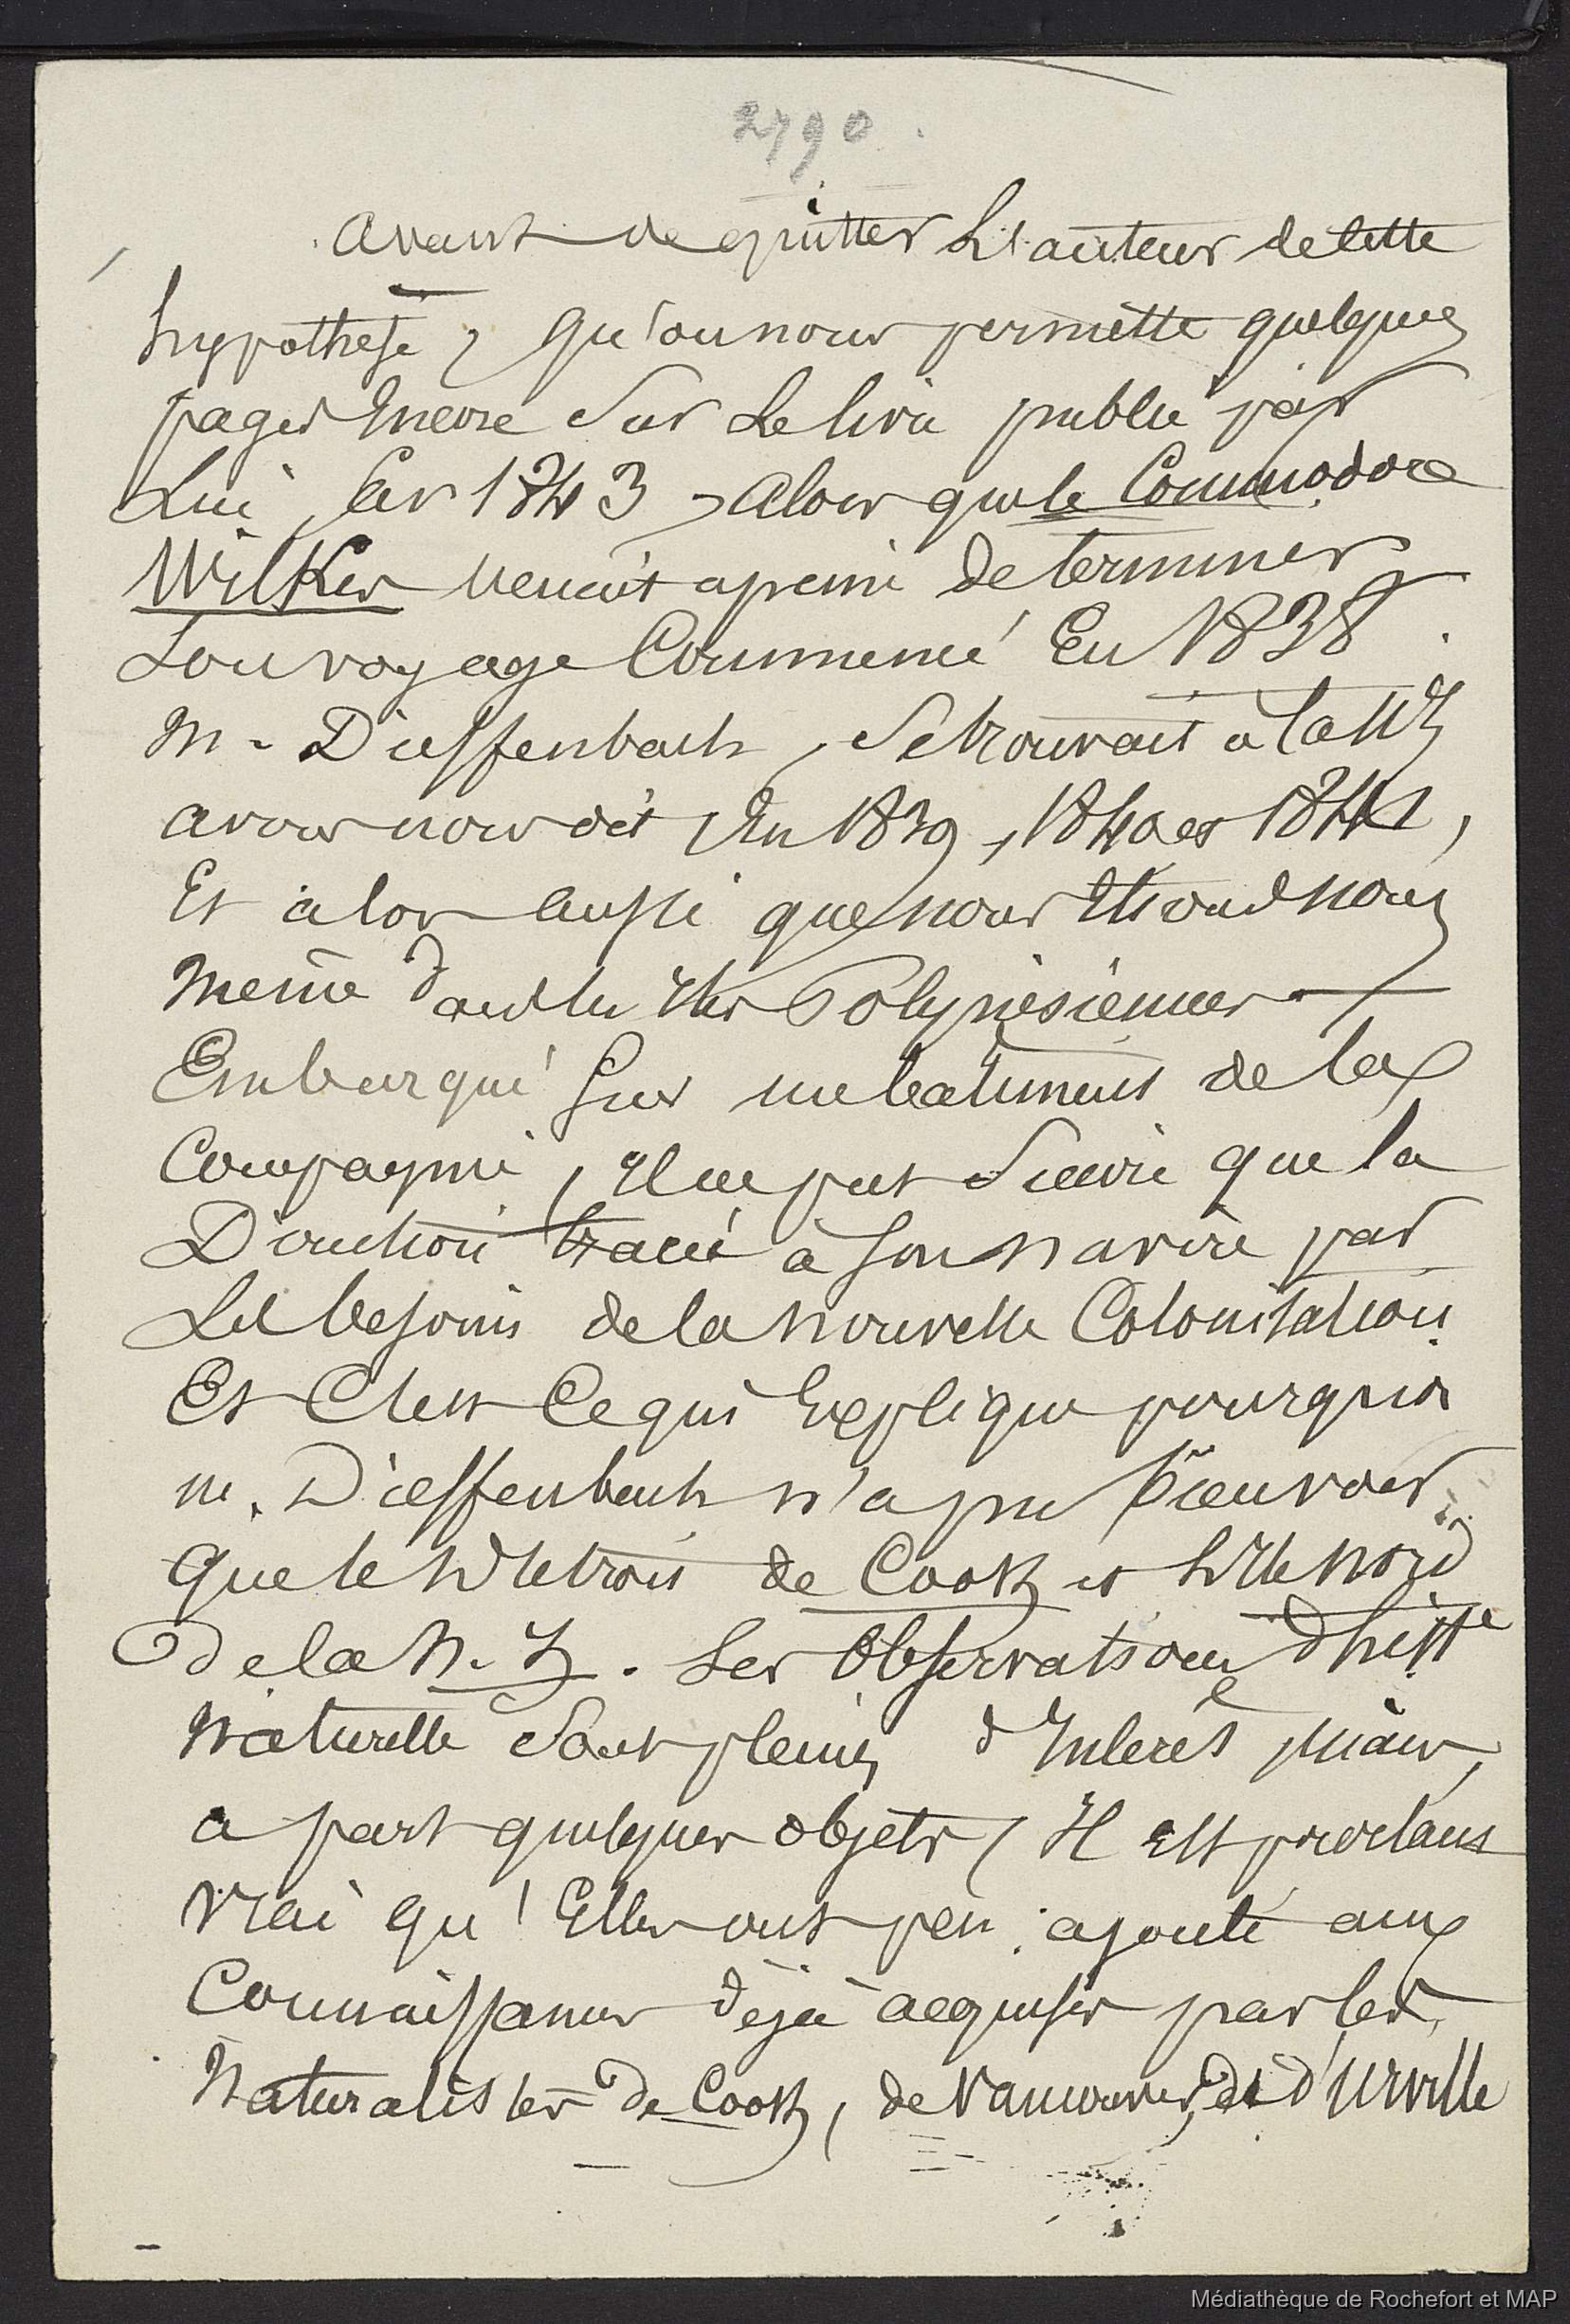 2790.
avant de quitter L'auteur de cette
hypothese, qu'on nous permette quelques
pages Encore Sur Le livre publié par
Lui, En 1843, alors que le Commodore
Wilkes venait a peine de terminer
Son voyage Commencé En 1838.
M. Dieffenbach, Se trouvait a la NZ
avons nous dit En 1839, 1840 et 1841,
Et alors aussi que nous Etions nous
même dans les Iles Polynésiennes
Embarqué Sur un batiment de la
Compagnie, Il ne put Suivre que la
Direction tracée à Son navire par
Les besoins de la nouvelle Colonisation
Et C'est Ce qui Explique pourquoi
M. Dieffenbach n'a pu bien voir
que le détroit de Cook et L'Ile nord
de la N. Z. Ses Observations d'histre
Naturelle Sont pleines d'Interêt mais,
a part quelques objets, Il est pourtant
vrai qu'Elles ont peu ajouté aux
Connaissances déjà acquises par les
Naturalistes de Cook, de Vancouver, de d'Urville
Médiathèque de Rochefort et MAP